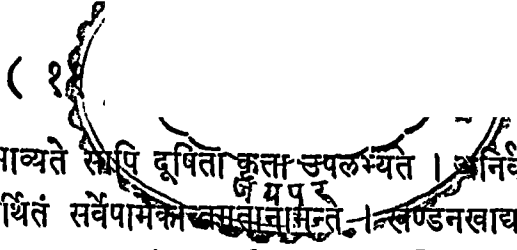 ( १
ाव्यते सापि दूषिता कृता उपलभ्यते । अनिर्व
जयपुर
र्थितं सर्वेषामेकान्तमतानामन्ते । खण्डनखाद्य